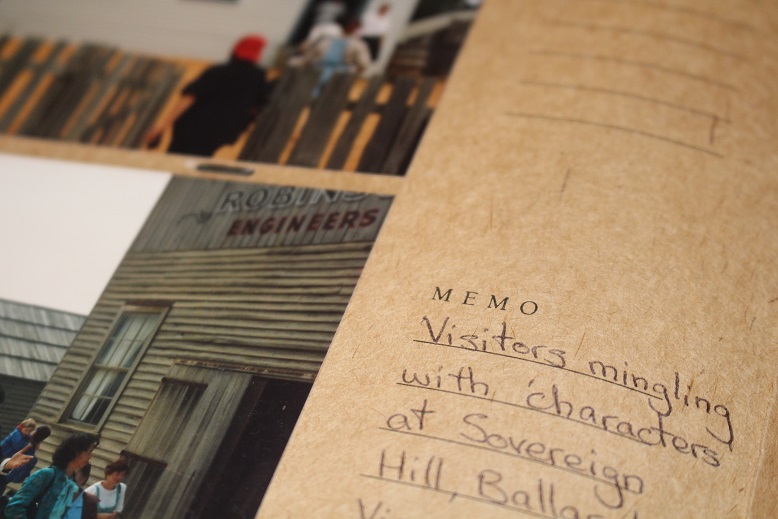 ENGINEERS
MEMO
Visitors mingling
with 'characters
at Sovereign
Hill,